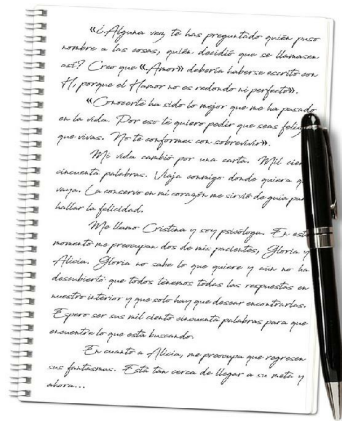 «¿Alguna vez te has preguntado quién puso
nombre a las cosas, quién decidió que se llamasen
así? Creo que «Amor» debería haberse escrito con
H, porque el Hamor no es redondo ni perfecto».
«Conocerte ha sido lo mejor que me ha pasado
en la vida. Por eso te quiero pedir que seas feliz,
que vivas. No te conformes con sobrevivir».
Mi vida cambió por una carta. Mil cien
cincuenta palabras. Viaja conmigo donde quiera q
vaya. La conservo en mi corazón me sirvió de guía para
hallar la felicidad.
Me llamo Cristina y soy psicóloga. En este
momento me preocupan dos de mis pacientes, Gloria y
Alicia. Gloria no sabe lo que quiere y aún no ha
descubierto que todos tenemos todas las respuestas en
nuestro interior y que solo hay que desear encontrarlas.
Espero ser sus mil ciento cincuenta palabras para que
encuentre lo que está buscando.
En cuanto a Alicia, me preocupa que regresen
sus fantasmas. Está tan cerca de llegar a su meta y
ahora...